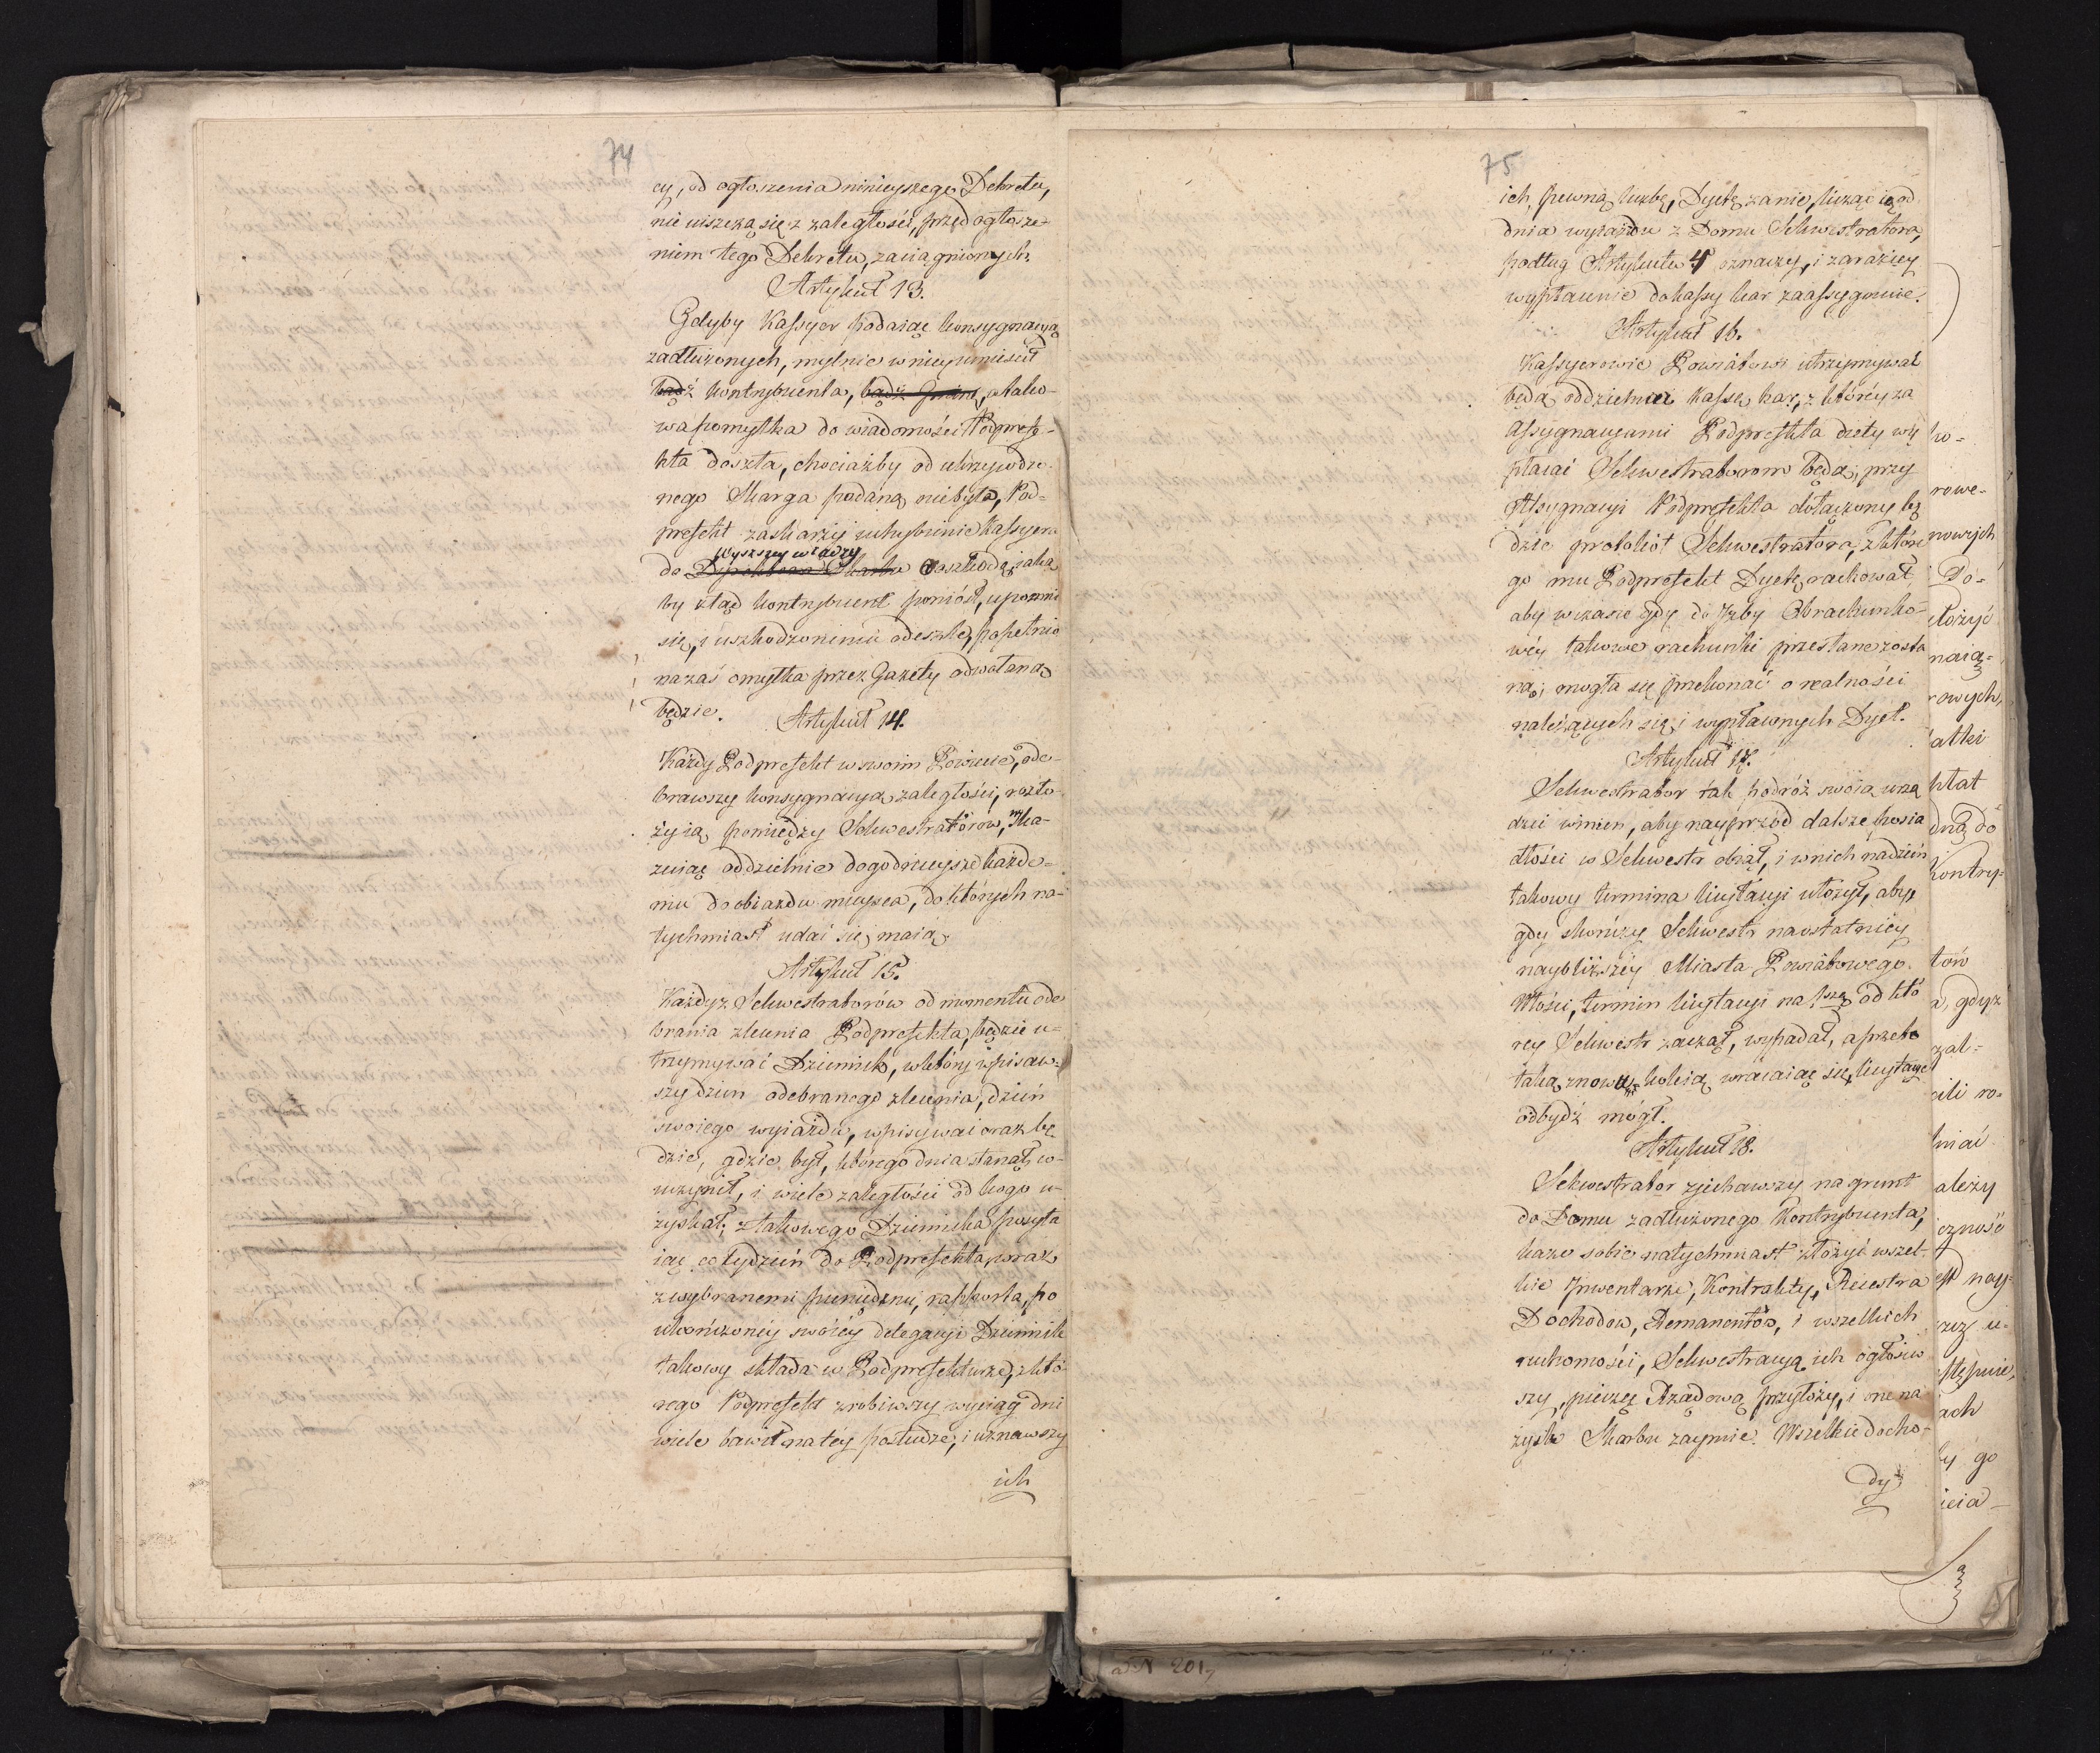 74
cy, od ogłoszenia ninieyszego Dekretu,
nie uiszczą się z zaległości, przed ogłosze-
niem tego Dekretu, zaciągnionych.
Artykuł 13.
Gdyby Kassyer podaiąc konsygnacyą
zadłużonych, mylnie w niey umieścił
bądź kontrybuenta, bądź gminę, a tako-
wa pomyłka do wiadomości Podprefe-
kta doszła, chociażby od ukrzywdzo-
nego Skarga podaną niebyła, Pod-
prefekt zaskarży uchybienie Kassyera
wyższey władzy
do Dyrektora Skarbu o szkodę, iaką
by ztąd kontrybuent poniósł, upomni
się, i uszkodzonemu odeszle, popełnio
na zaś omyłka przez Gazety odwołaną
będzie.
Artykuł 14.
Każdy Podprefekt w swoim Powiecie, ode-
brawszy konsygnacyą zaległości, rozło-
ży ią pomiędzy Sekwestratorów, wska-
zuiąc oddzielnie dogodnieysze każde-
mu do obiazdu mieysca, do których na-
tychmiast udać się maią.
Artykuł 15.
Każdy z Sekwestratorów od momentu ode
brania zlecenia Podprefekta, będzie u-
trzymywać Dziennik, w który wpisaw-
szy dzień odebranego zlecenia, dzień
swoiego wyiazdu, wpisywać oraz bę-
dzie, gdzie był, którego dnia stanął, co
uczynił, i wiele zaległości od kogo u-
zyskał; z takowego Dziennika posyła
iąc co tydzień do Podprefekta, wraz
z wybranemi pieniędzmi, rapporta, po
ukończoney swoiéy delegacyi Dziennik
takowy składa w Podprefekturze, z któ-
rego Podprefekt zrobiwszy wyciąg dni
wiele bawił na tey posłudze, i uznawszy
ich
75
ich, pewną liczbę, Dyetę zanie, licząc ią od
dnia wyiazdu z Domu Sekwestratora,
podług Artykułu 4 oznaczy, i zaraziey
wypłacenie do kassy kar zaassygnuie.
Artykuł 16.
Kassyerowie Powiatowi utrzymywać
będą oddzielnie Kassę kar, z któréy za
Assygnacyami Podprefekta diety wy
płacać Sekwestratorom będą; przy
Assygnacyi Podprefekta dołączony bę
dzie protokół Sekwestratora, z które
go mu Podprefekt Dyetę rachował,
aby w czasie gdy do Izby Obrachunko-
wéy takowe rachunki przesłane zosta
ną, mogła się przekonać o realności
należących się i wypłaconych Dyet.
Artykuł 17.
Sekwestrator tak podróż swoią urzą
dzić winien, aby nayprzód dalsze posia
dłości w Sekwestr obiął, i w nich na dzień
takowy termina licytacyi ułożył, aby
gdy skończy Sekwestr na ostatniéy
naybliższéy Miasta Powiatowego.
Włości, termin licytacyi na 1szą od któ
rey Sekwestr zaczął, wypadał, a przeto
taką znowu koleią wracaiąc się, licytacye
odbydź mógł.
Artykuł 18.
Sekwestrator zjechawszy na grunt
do Domu zadłużonego Kontrybuenta,
każe sobie natychmiast złożyć wszel-
kie Inwentarze, Kontrakty, Reiestra
Dochodów, Remanentów, i wszelkich
ruchomości, Sekwestracyą ich ogłosiw
szy, pieczęć Rządową przyłoży, i one na
zysk Skarbu zaymie. Wszelkie docho-
dy
ko-
rowe-
nowych
Do-
łożyć
naią-
rowych,
atki
kłat
dną do
kontry-
tów
a, gdyż
zal-
cili ro-
niać
ależy
czność
est nay-
rzez u-
stępnie,
ach
by go
icia-
a N 201,